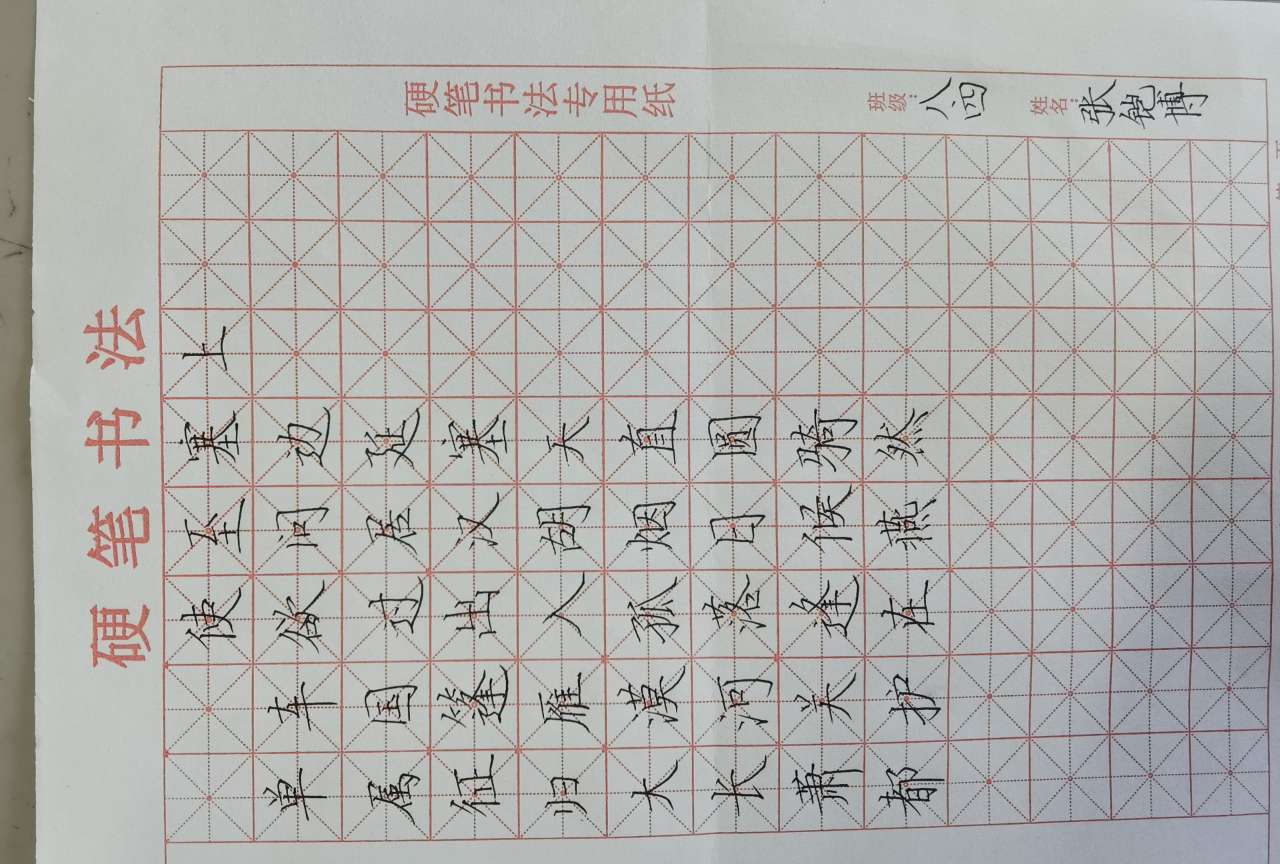 硬笔书法
使至塞上
单车欲问边
属国过居延
征篷出汉塞
归雁入胡天
大漠孤烟直
长河落日圆
萧关逢候骑
都护在燕然
硬笔书法专用纸
班级：八四
姓名：张铠博